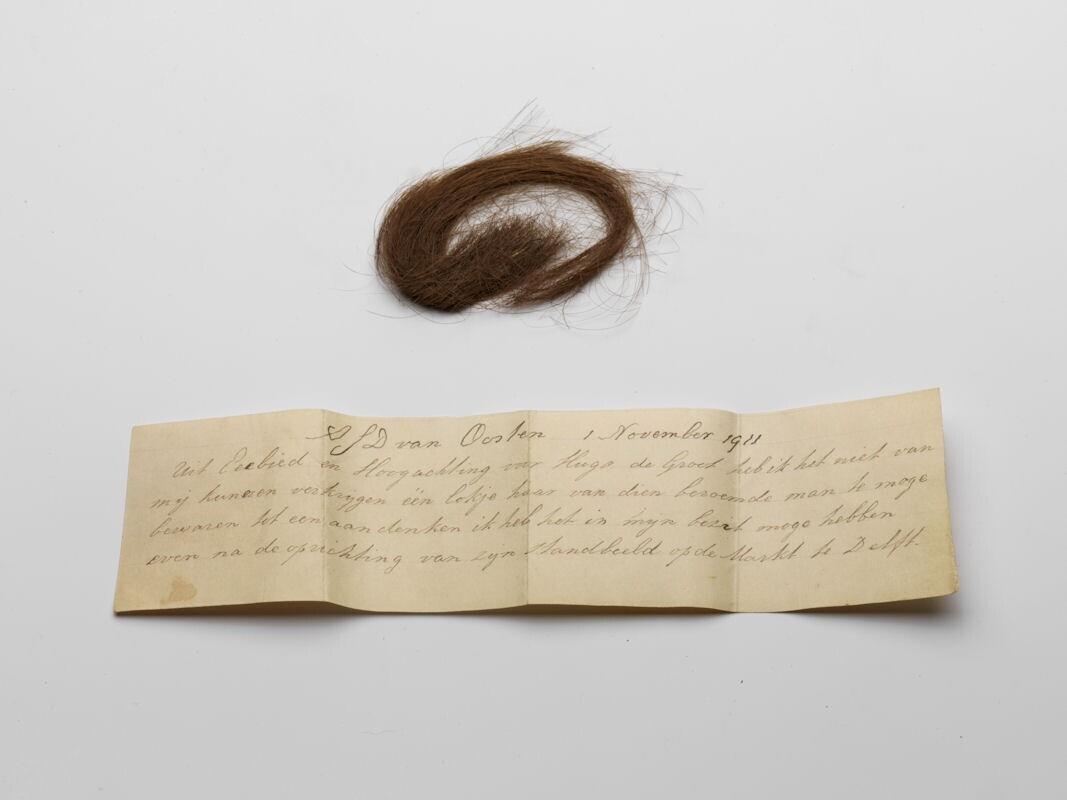 SD van Oosten 1 November 1911
Uit Eerbied en Hoogachting voor Hugo de Groot heb ik het niet van
mij kunnen verkrijgen één lokje haar van dien beroemde man te moge
bewaren tot een aandenken ik heb het in mijn bezit moge hebben
even na de oprichting van zijn Standbeeld op de Markt te Delft.